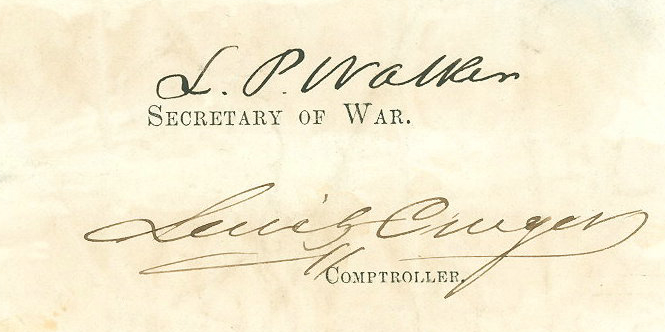 L. P. Walker
SECRETARY OF WAR.
Lewis Cruger
COMPTROLLER.